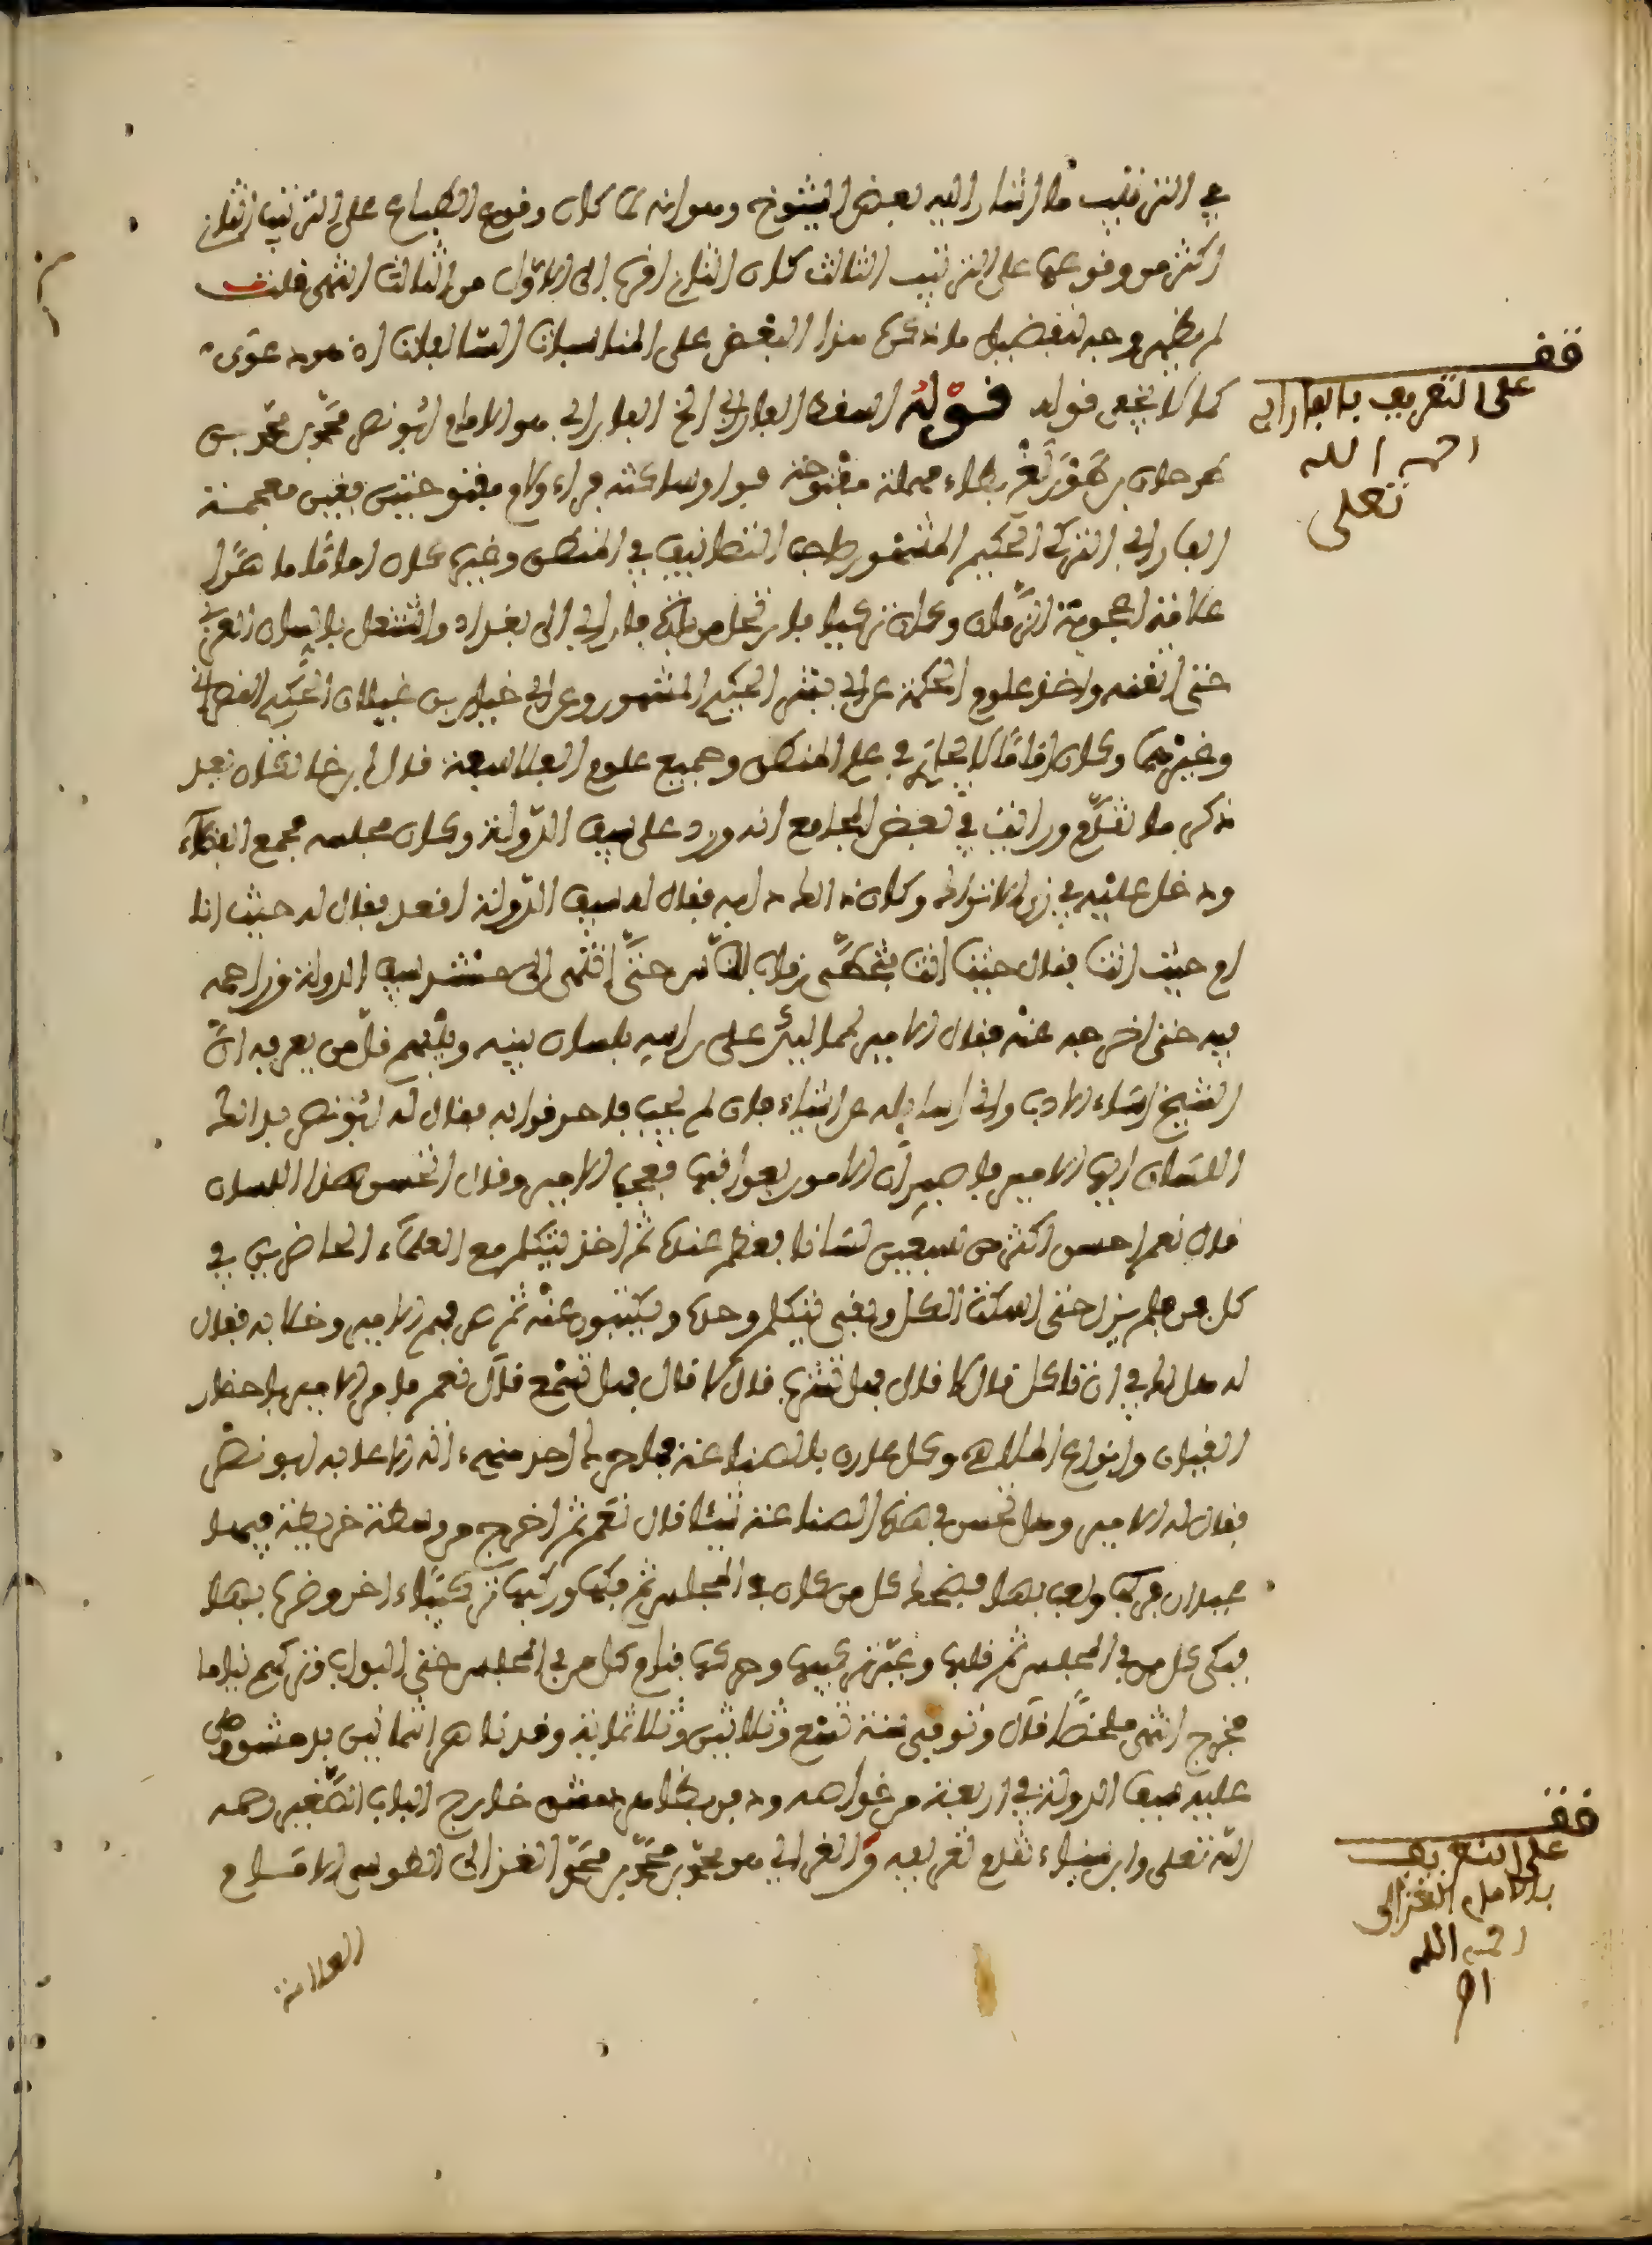 في الترتيب ما أشار إليه بعض الشيوخ وهو انه لما كان وقوع الطباع على الترتيب الثاني
اكثر من وقوعها على الترتيب الثالث كان الثاني اقرب إلى الاول من الثالث انتهى قلت
لم يظهر وجه تفضيل ما ذكره هذا البعض على المناسبات السابقات اذ هو دعوى
كما لا يخفى قوله قوله اسقط الفارابي الخ الفارابي هو الامام ابو نصر محمد بن محمد بن
طرخان بن طَوْزَلَغْ بطاء مهملة مفتوحة فواو ساكنة فزاي ولام مفتوحتين فغين معجمة
الفارابي التركي الحكيم المشهور صاحب التصانيف في المنطق وغيره كان اماما ماهرا
علامة اعجوبة الزمان وكان تركيا فارتحل من بلده فاراب إلى بغداد واشتغل باللسان العربي
حتى اتقنه واخذ علوم الحكمة عن ابي بشر الحكيم المشهور وعن ابي خيلان بن غيلان الحكيم النصراني
وغيرهما وكان اماما لا يجارى في علم المنطق وجميع علوم الفلاسفة قال ابن خلكان بعد
ذكر ما تقدم ورايت في بعض المجامع انه ورد على سيف الدولة وكان مجلسه مجمع الفضلاء
ودخل عليه في زي الاتراك وكان ذلك دابه فقال له سيف الدولة اقعد فقال له حيث انا
ام حيث انت فقال حيث انت فتخطى رقاب الناس حتى انتهى إلى مسند سيف الدولة وزاحمه
فيه حتى اخرجه عنه فقال الامير لمماليك على راسه بلسان بينه وبينهم قل من يعرفه ان
الشيخ اساء الادب واني اسايله عن اشياء فان لم يجب فاخرقوا به فقال له ابو نصر بذلك
اللسان ايها الامير فاصبر ان الامور بعواقبها فعجب الامير وقال اتحسن بهذا اللسان
قال نعم احسن اكثر من سبعين لسانا فعظم عنده ثم اخذ يتكلم مع العلماء الحاضرين في
كل فن فلم يزل حتى اسكت الكل وبقي يتكلم وحده ويكتبون عنه ثم صرفهم الامير وخلا به فقال
له هل لك في ان تاكل قال لا قال فهل تشرب قال لا قال فهل تسمع قال نعم فامر الامير باحضار
القيان وانواع الملاهي وكل عارف بالصناعة فما حرك احد منهم آلته الا عابه ابو نصر
فقال له الامير وهل تحسن في هذه الصناعة شيئا قال نعم ثم اخرج من وسطه خريطة فيها
عيدان فركبها ولعب بها فضحك كل من كان في المجلس ثم فكها وركبها تركيبا ءاخر وضرب بها
فبكى كل من في المجلس ثم قلبها وغير تركيبها وحركها فنام كل من في المجلس حتى البواب وتركهم نياما
فخرج انتهى ملخصا قال وتوفي سنة تسع وثلاثين وثلاثمائة وقد ناهز الثمانين بدمشق وصلى
عليه سيف الدولة في اربعة من خواصه ودفن بظاهر دمشق خارج الباب الصغير رحمه
الله تعلى وابن سيناء تقدم تعريفه والغزالي هو محمد بن محمد بن محمد الغزالي الطوسي الامام
العلامة
قف
على التعريف بالفارابي
رحمه الله
تعلى
قف
على التعريف
بالامام الغزالي
رحمه الله
اه